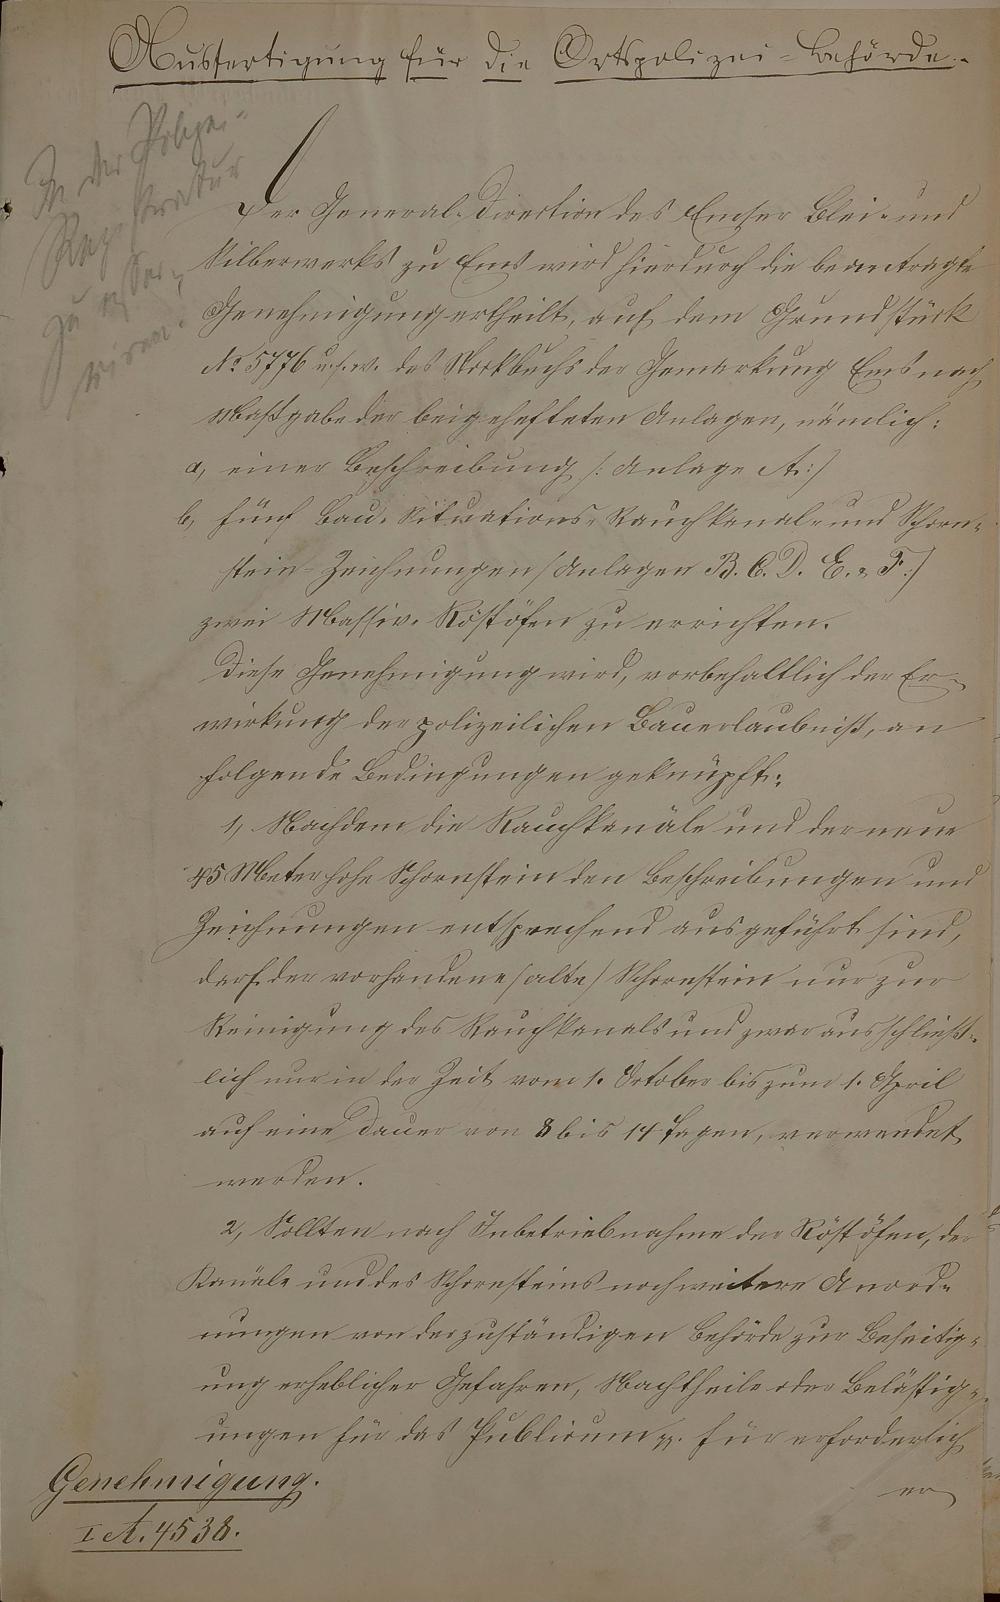 Ausfertigung für die Ortspolizei-Behörde.
In der Polizei-
Registratur
zu
Der General-Direction des Emser Blei- und
Silberwerks zu Ems wird hierdurch die beantragte
Genehmigung ertheilt, auf dem Grundstück
No. 5776 u.s.w. des Stockbuchs der Gemarkung Ems nach
Maßgabe der beigehefteten Anlagen, nämlich:
a, einer Beschreibung /: Anlage A :/
b, fünf Bau-Situations-Rauchkanal- und Schorn-
stein-Zeichnungen / Anlagen B. C. D. E. & F./
zwei Massiv-Röstöfen zu errichten.
Diese Genehmigung wird, vorbehaltlich der Er-
wirkung der polizeilichen Bauerlaubniß, an
folgende Bedingungen geknüpft:
1, Nachdem die Rauchkanäle und der neue
45 Meter hohe Schornstein den Beschreibungen und
Zeichnungen entsprechend ausgeführt sind,
darf der vorhandene /alte/ Schornstein nur zur
Reinigung des Rauchkanals und zwar ausschließ-
lich nur in der Zeit vom 1. October bis zum 1. April
auf eine Dauer von 8 bis 14 Tagen, verwendet
werden.
2, Sollten nach Inbetriebnahme der Röstöfen, der
Kanäle und des Schornsteins noch weitere Anord-
nungen von der zuständigen Behörde zur Beseitig-
ung erheblicher Gefahren, Nachtheile oder Belästig-
ungen für das Publicum p. für erforderlich
er
Genehmigung.
I A. 4538.